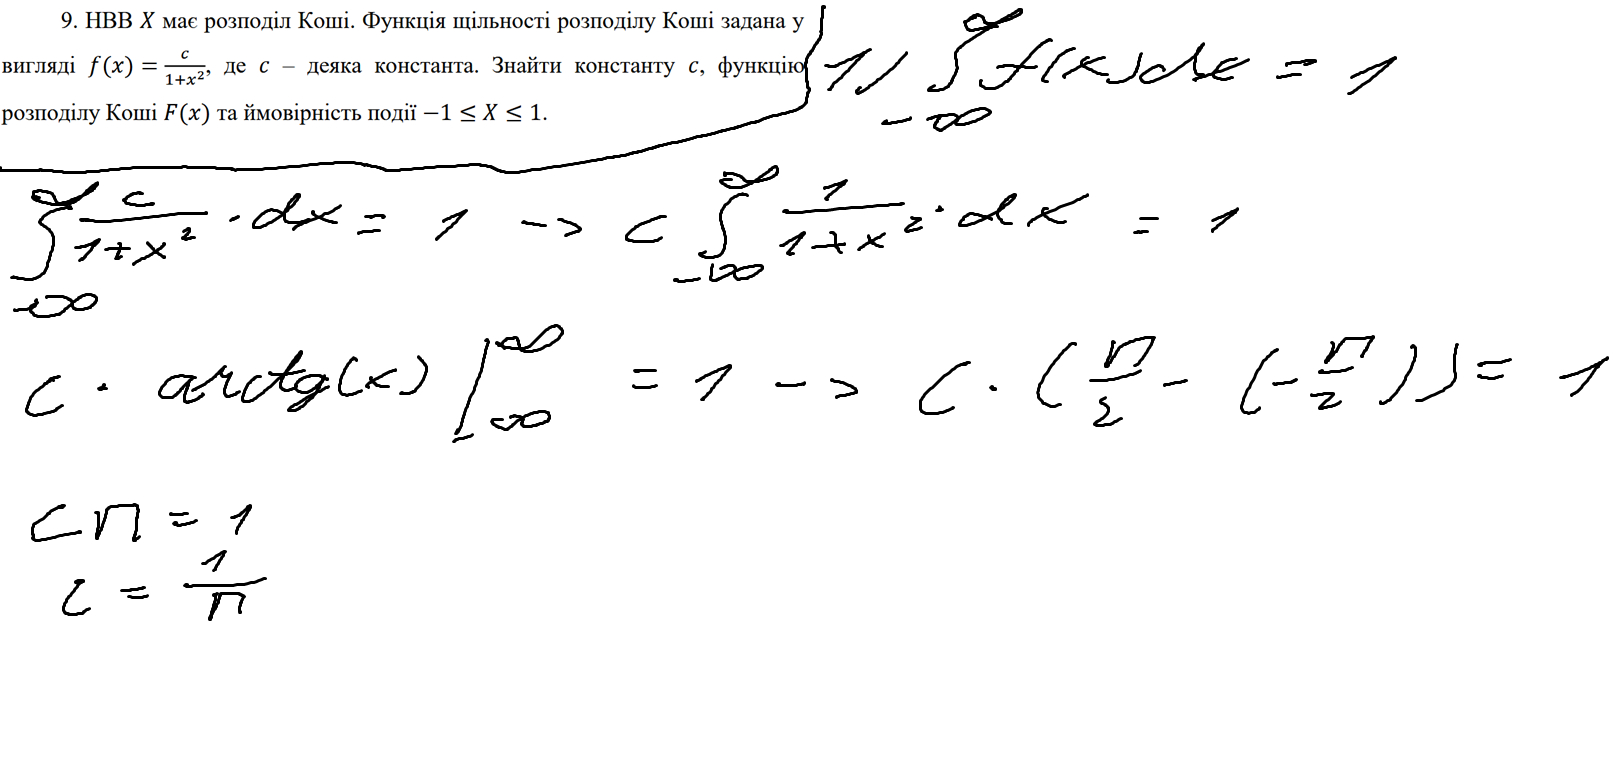 9. НВВ X має розподіл Коші. Функція щільності розподілу Коші задана у
вигляді f(x) = c/(1+x²), де c – деяка константа. Знайти константу c, функцію
розподілу Коші F(x) та ймовірність події −1 ≤ X ≤ 1.
1) ∫_{-∞}^{∞} f(x)dx = 1
∫_{-∞}^{∞} c/(1+x²) · dx = 1 -> c ∫_{-∞}^{∞} 1/(1+x²) · dx = 1
c · arctg(x) |_{-∞}^{∞} = 1 -> c · (π/2 - (-π/2)) = 1
cπ = 1
c = 1/π